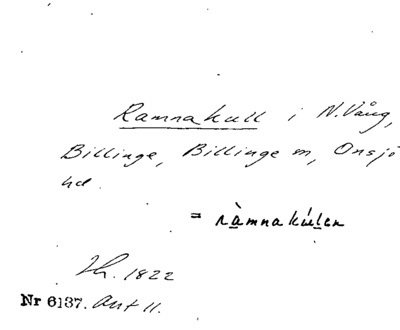 Ramnakull i N. Vång,
Billinge, Billinge sn, Onsjö
hd.
= ràmnakúlen
Nr 6137. Ant 11.